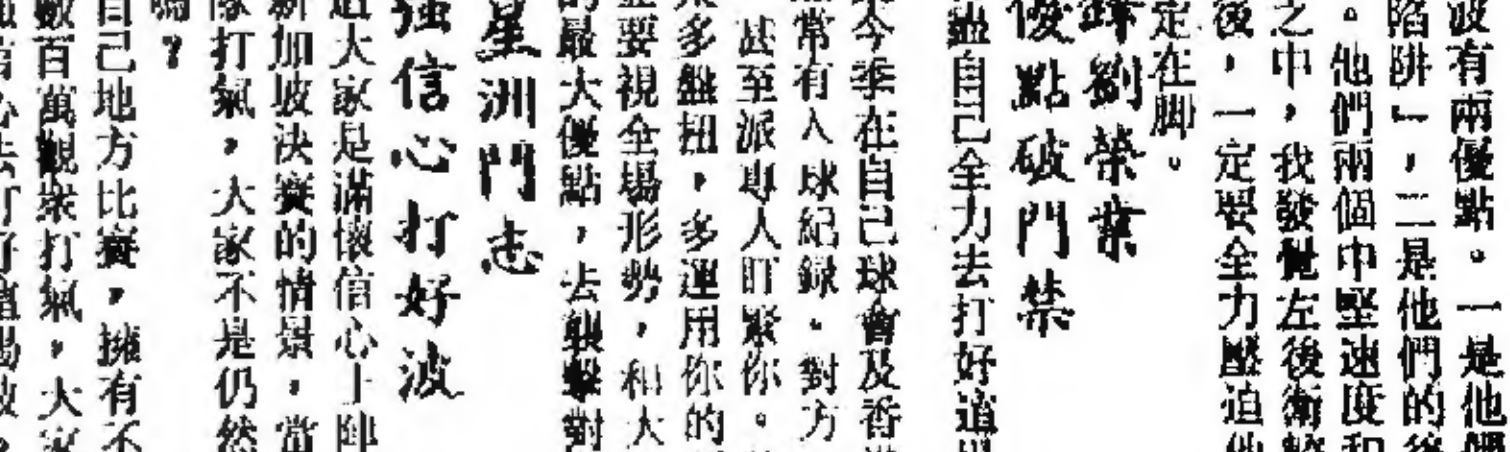 波有兩優點。一是他們
陷阱」,二是他們的後
。他們兩個中堅速度和
之中,我發覺左後衛
後,一定要全力壓迫他
定在脚。
劉榮業
優點破門禁
自己全力去打好這場
今季在自己球會及香港
常有入球紀録。對方
甚至派專人盯緊你。
多盤扭,多運用你的
要視全場形勢,和大
的最大優點,去襲擊對
星洲鬥志
強信心打好波
大家是滿懷信心上陣
新加坡決賽的情景。當
隊打氣,大家不是仍然
嗎?
自己地方比賽,擁有不
數百萬觀衆打氣,大家
信心去打好這場波。